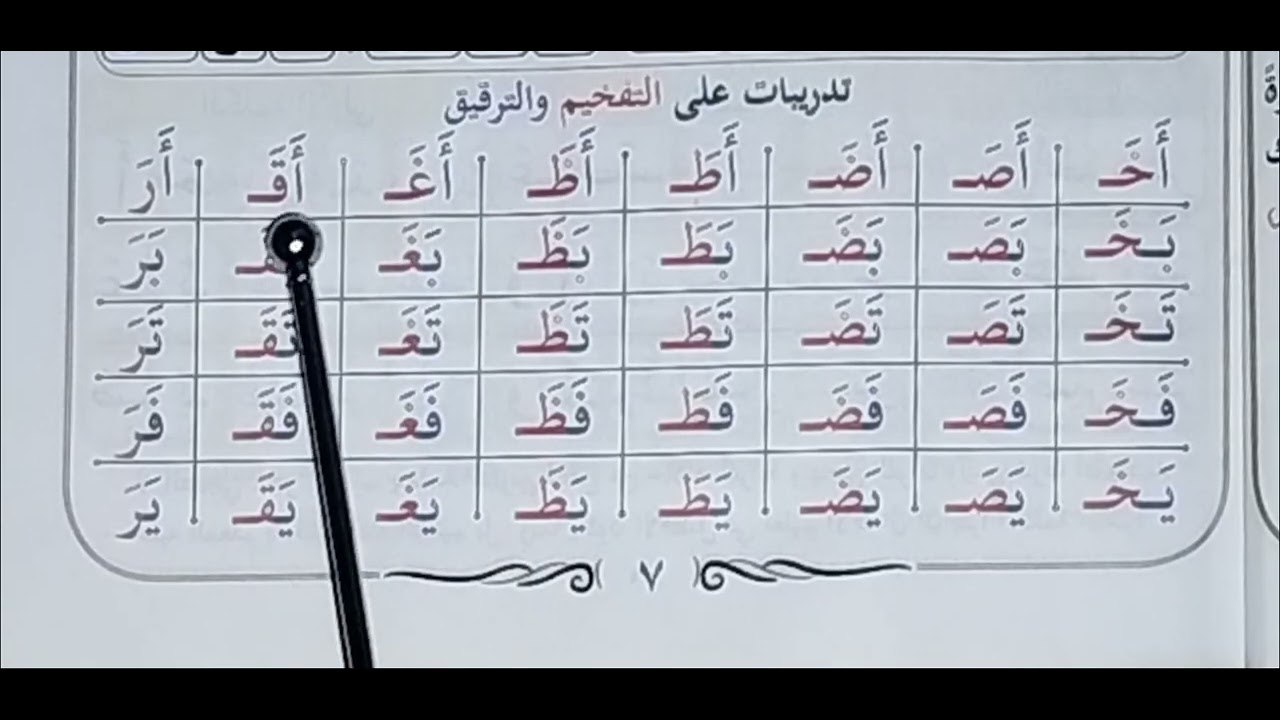 تدريبات على التفخيم والترقيق
أَخَـ أَصَـ أَضَـ أَطَـ أَظَـ أَغَـ أَقَـ أَرَ
بَخَـ بَصَـ بَضَـ بَطَـ بَظَـ بَغَـ بَرَ
تَخَـ تَصَـ تَضَـ تَطَـ تَظَـ تَغَـ تَقَـ تَرَ
فَخَـ فَصَـ فَضَـ فَطَـ فَظَـ فَغَـ فَقَـ فَرَ
يَخَـ يَصَـ يَضَـ يَطَـ يَظَـ يَغَـ يَقَـ يَرَ
٧